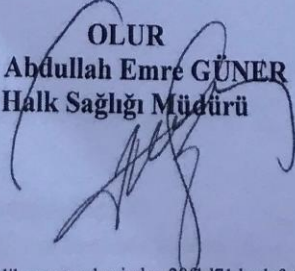 OLUR
Abdullah Emre GÜNER
Halk Sağlığı Müdürü